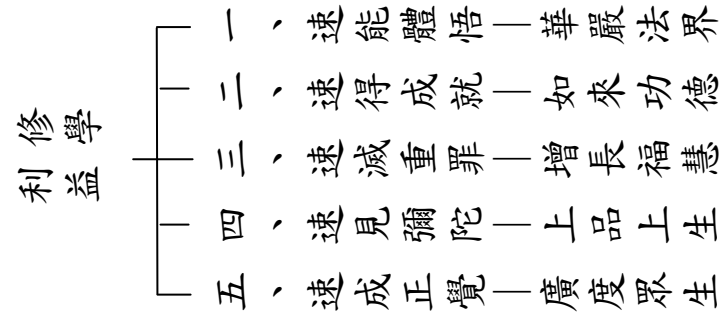 修學
利益
一、速能體悟—華嚴法界
二、速得成就—如來功德
三、速滅重罪—增長福慧
四、速見彌陀—上品上生
五、速成正覺—廣度眾生